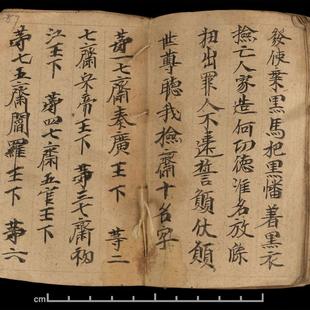 發使乘黑馬把黑幡著黑衣
撿亡人家造何功德准名放牒
抽出罪人不違誓願伏願
世尊聽我撿齋十名字
第一七齋秦廣王下 第二
七齋宋帝王下 第三七齋初
江王下 第四七齋五官王下
第七五齋閻羅王下 第六
cm